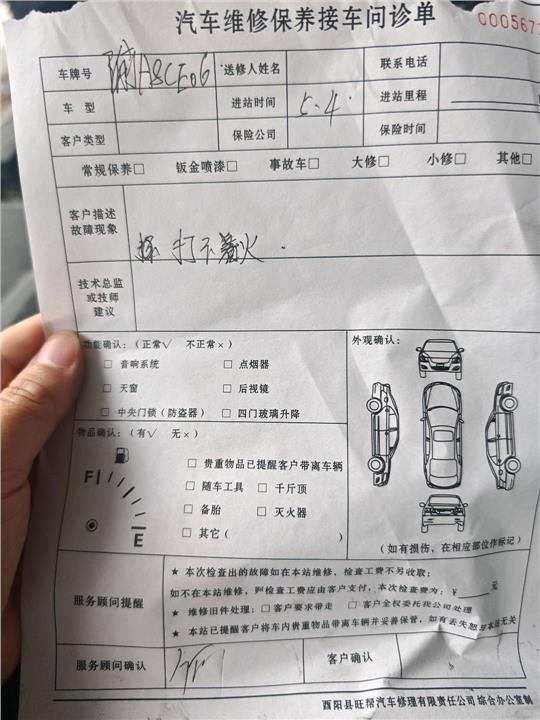 汽车维修保养接车问诊单
000567
车牌号 A8CE06 送修人姓名 联系电话
车 型 进站时间 5.4. 进站里程
客户类型 保险公司 保险时间
常规保养□ 钣金喷漆□ 事故车□ 大修□ 小修□ 其他□
客户描述
故障现象
打不着火.
技术总监
或技师
建议
功能确认：（正常√ 不正常×） 外观确认：
□ 音响系统 □ 点烟器
□ 天窗 □ 后视镜
□ 中央门锁（防盗器） □ 四门玻璃升降
物品确认：（有√ 无×）
F E
□ 贵重物品已提醒客户带离车辆
□ 随车工具 □ 千斤顶
□ 备胎 □ 灭火器
□ 其它（ ）
（如有损伤，在相应部位作标记）
服务顾问提醒
★ 本次检查出的故障如在本站维修，检查工费不另收取；
如不在本站维修，则检查工费应由客户支付，本次检查费为：¥ 元
★ 维修旧件处理：□ 客户要求带走 □ 客户全权委托我公司处理
★ 本站已提醒客户将车内贵重物品带离车辆并妥善保管，如有丢失恕与本站无关
服务顾问确认 客户确认
酉阳县旺帮汽车修理有限责任公司 综合办公室制